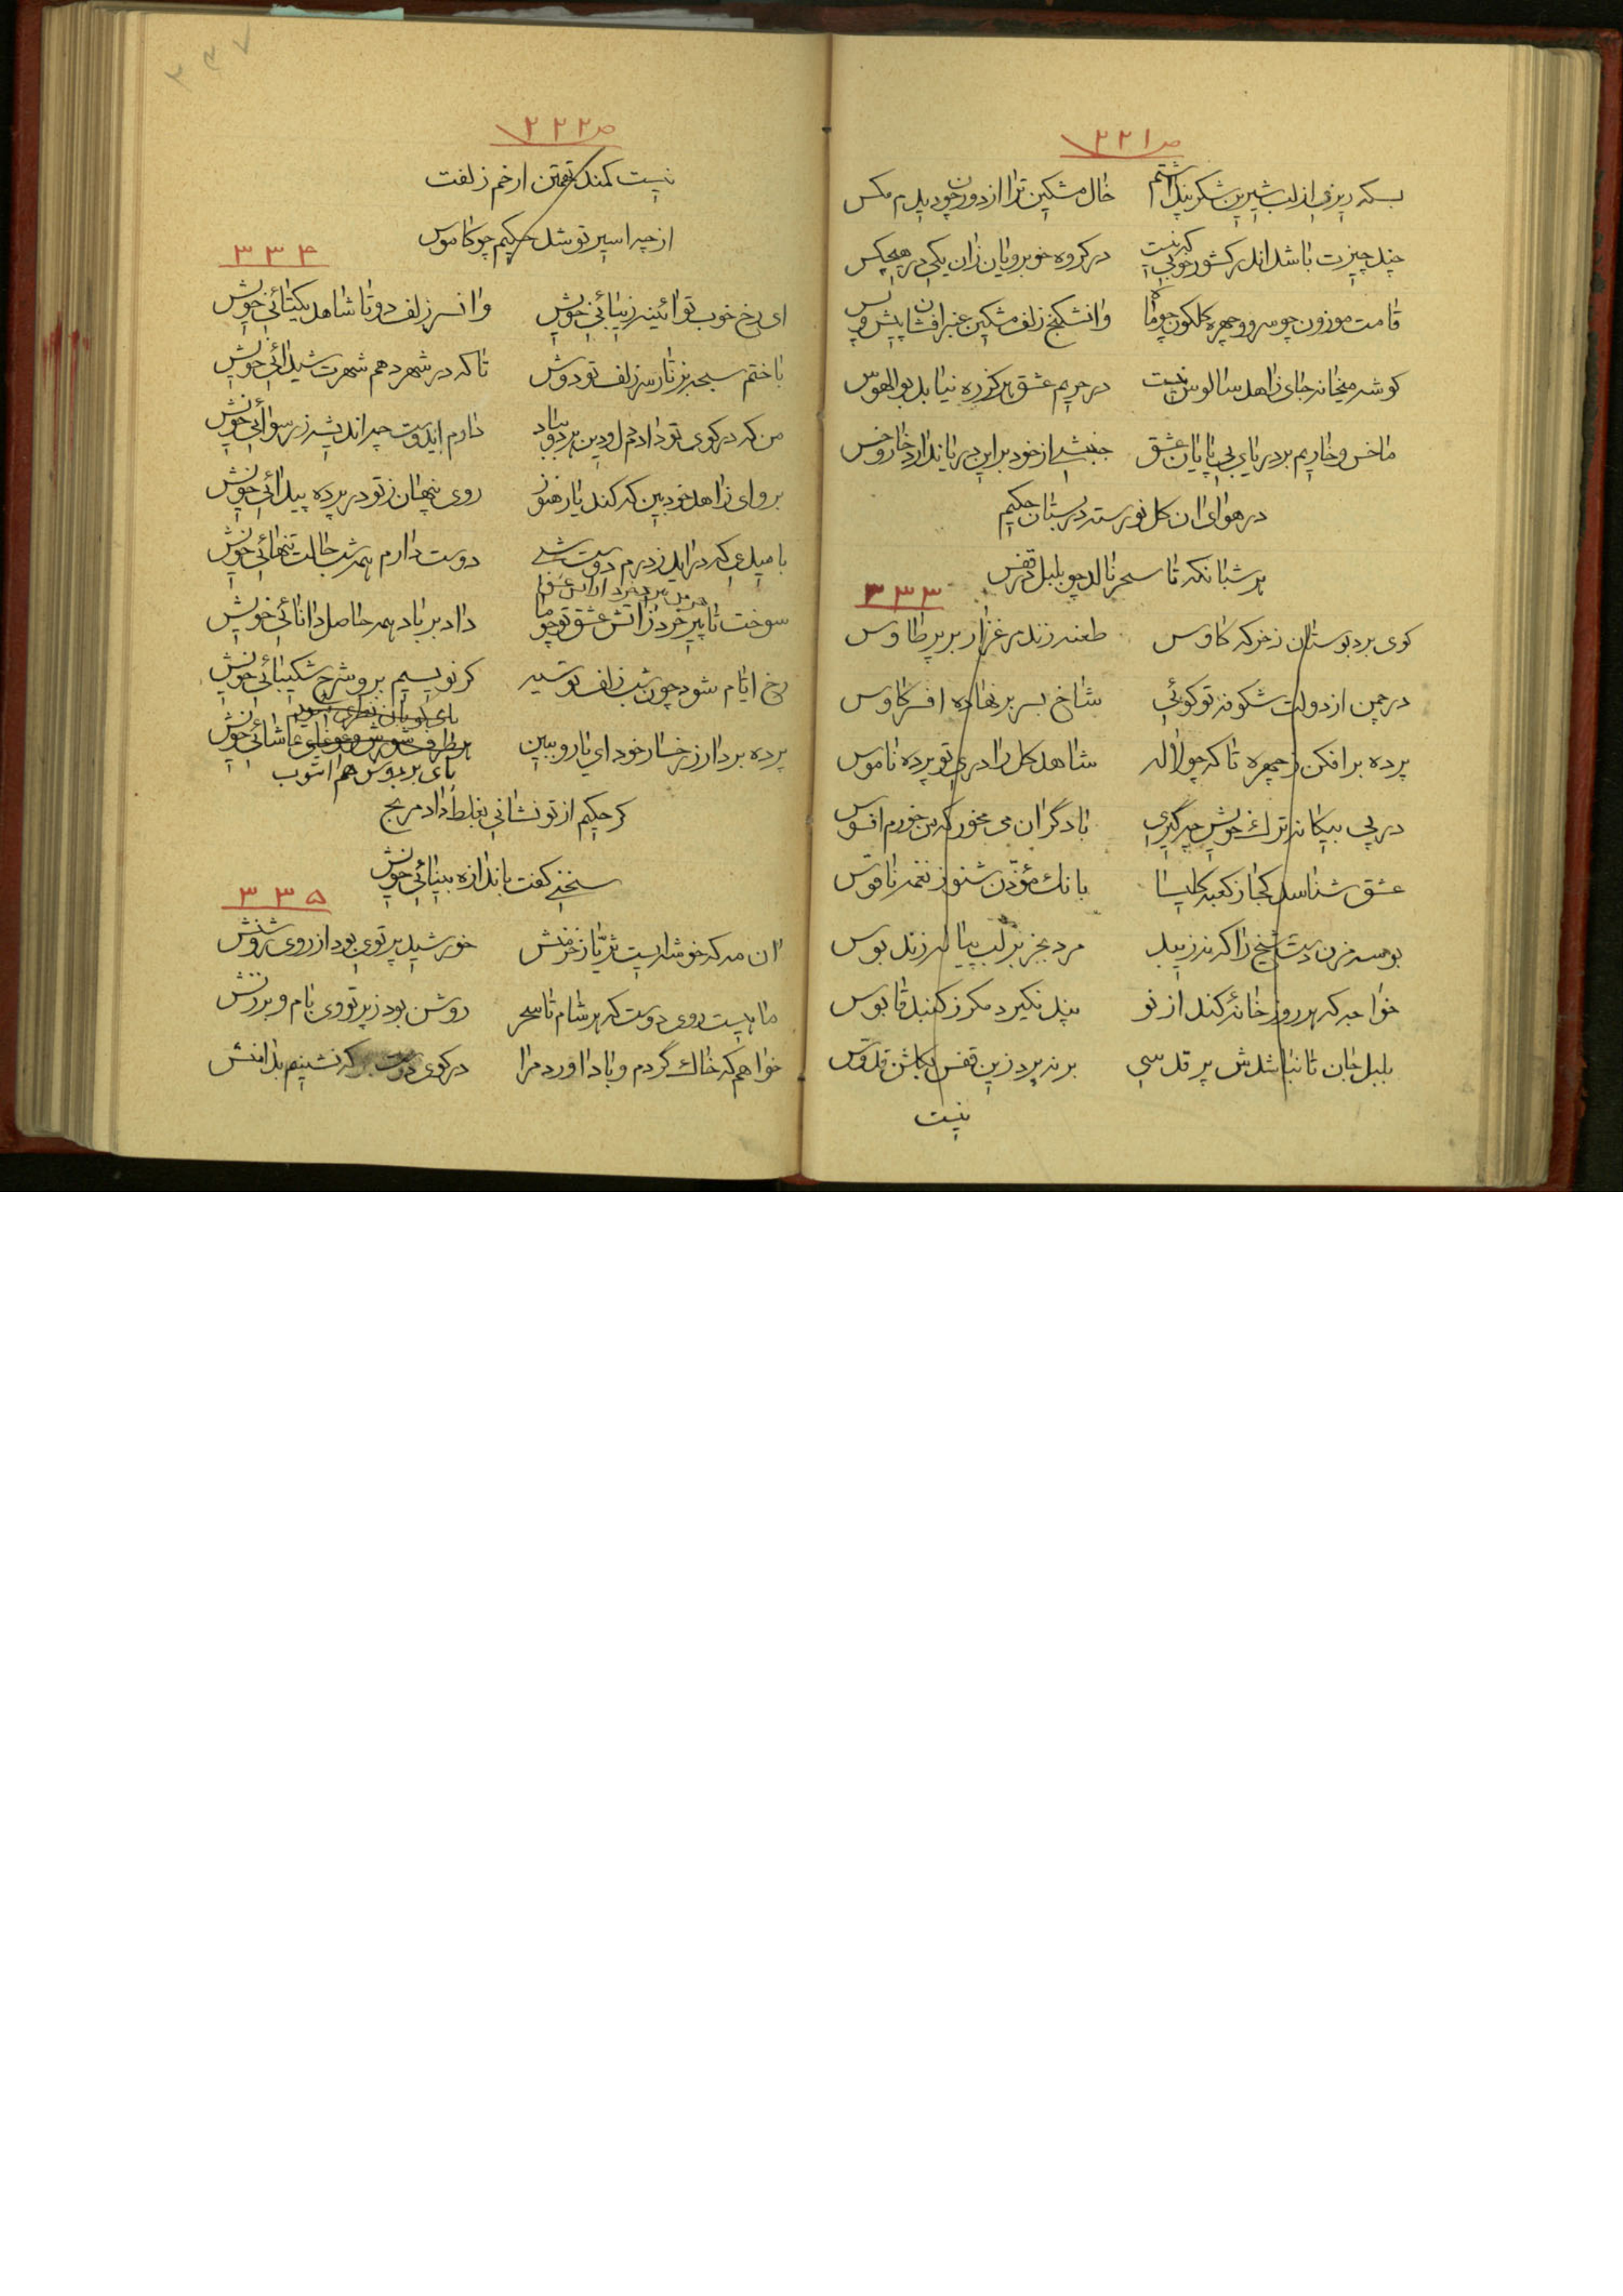 ص ۲۲۱
بسکه ریزی از لب شیرین شکر پنداشتم خال مشکین ترا از دور چون دیدم مکس
چند چیزت باشد اندر کشور خوبی که نیست در کروه خوبرویان زان یکی در هیچکس
قامت موزون چو سرو و چهره کلکون چو ماه وان شکنج زلف مشکین عنبر افشان پیش و پس
کوشه میخانه جای زاهد سالوس نیست در حریم عشق هرکز ره نیابد بوالهوس
ما خس و خاریم بر دریای بی پایان عشق جنبشی از خود براین دریا ندارد خار و خس
در هوای ان کل نورسته در بستان حکیم
هر شبانکه تا سحر نالد چو بلبل در قفس
۳۳۳
کوی برد بوستان ز خرکه کاوس طعنه زند مرغزار بر پر طاوس
در چمن از دولت شکوفه تو کوئی شاخ بسر بر نهاده افسر کاوس
پرده برافکن ز چهره تا که چو لاله شاهد کل را دری تو پرده ناموس
در پی بیکانه ترک خویش چه کیری با دگران می مخور که من خورم افسوس
عشق شناسد کجا ز کعبه کلیسا بانک مؤذن شنو ز نغمه ناقوس
بوسه مزن دست شیخ را که نزیبد مرد بجز بر لب پیاله زند بوس
خواجه که هر روز خانه کند از نو پند نکیرد مکر ز کنبد قابوس
بلبل جان تا نباشدش پر قدسی بر نپرد زین قفس بکلشن قدوس
نیست
ص ۲۲۲
نیست کمند تهمتن ار خم زلفت
از چه اسیر تو شد حکیم چو کاموس
۳۳۴
ای رخ خوب تو ائینه زیبائی خویش وان سر زلف دوتا شاهد یکتائی خویش
باختم سبحه بزنار سر زلف تو دوش تا که در شهر دهم شهرت شیدائی خویش
من که در کوی تو دادم دل و دین هر دو بباد دارم ایدوست چه اندیشه ز رسوائی خویش
برو ای زاهد خودبین که کند یار هنوز روی پنهان ز تو در پرده پیدائی خویش
بامیدی که دراید ز درم دوست شبی دوست دارم همه شب حالت تنهائی خویش
سوخت تا پیر خرد ز اتش عشق تو چو ما داد بر باد همه حاصل دانائی خویش
رخ ایام شود چون شب زلف تو سیه کر نویسیم برو شرح شکیبائی خویش
پرده بردار ز رخسار خود ای یار و ببین
کر حکیم از تو نشانی بغلط داد مرنج
سخنی کفت باندازه بینائی خویش
۳۳۵
ان مه که خوشه ایست ثریا ز خرمنش خورشید پرتوی بود از روی روشنش
ماهیست روی دوست که هر شام تا سحر روشن بود ز پرتو وی بام و برزنش
خواهم که خاک گردم و باد اورد مرا در کوی دوست که نشینم بدامنش